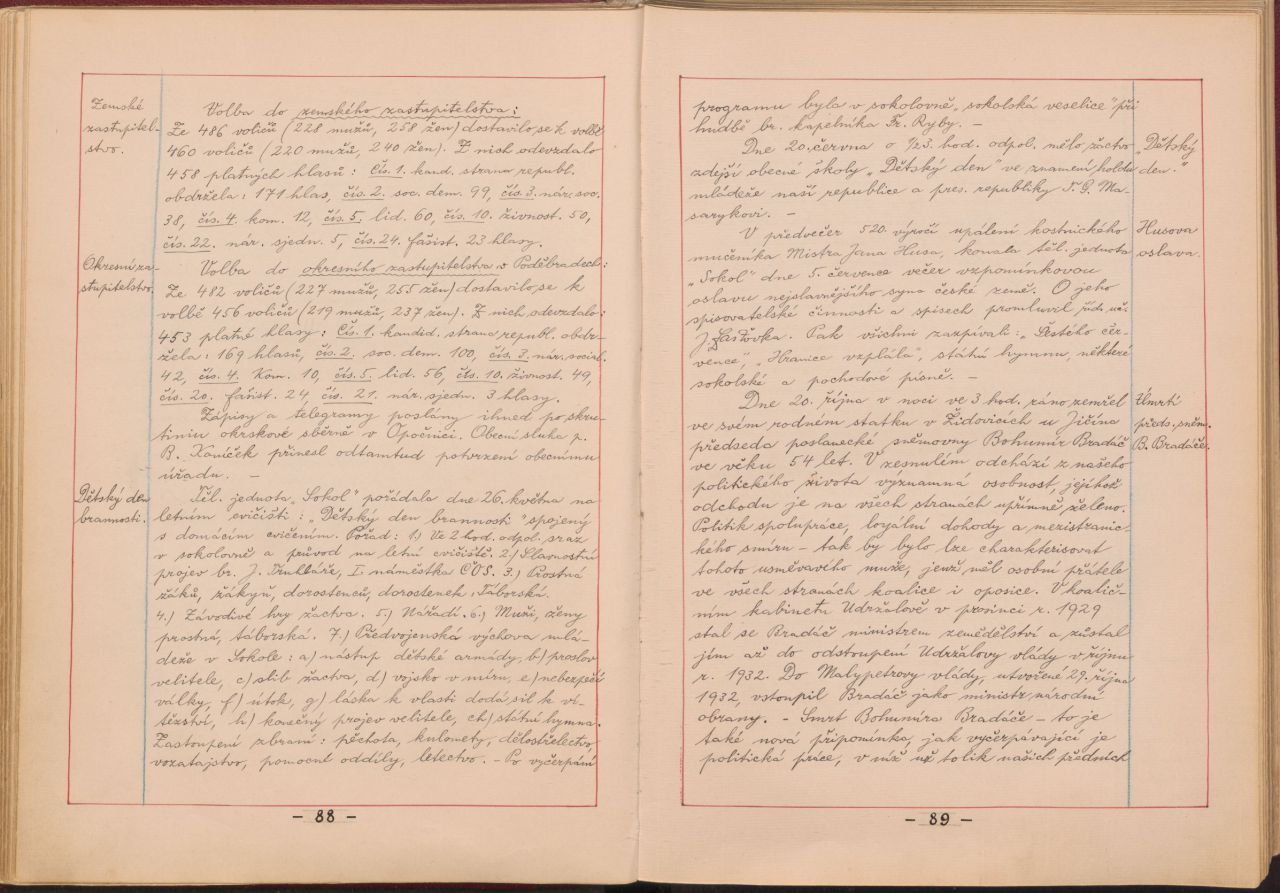 Zemské
zastupitel-
stvo.
Volba do zemského zastupitelstva:
Ze 486 voličů (228 mužů, 258 žen) dostavilo se k volbě
460 voličů (220 mužů, 240 žen). Z nich odevzdalo
458 platných hlasů: čís. 1. kand. strana republ.
obdržela: 171 hlas, čís. 2. soc. dem. 99, čís. 3. nár. soc.
38, čís. 4. kom. 12, čís. 5. lid. 60, čís. 10. živnost. 50,
čís. 22. nár. sjedn. 5, čís. 24. fašist. 23 hlasy.
Okresní za-
stupitelstvo.
Volba do okresního zastupitelstva v Poděbradech:
Ze 482 voličů (227 mužů, 255 žen) dostavilo se k
volbě 456 voličů (219 mužů, 237 žen). Z nich odevzdalo:
453 platné hlasy: Čís. 1. kandid. strana republ. obdr-
žela: 169 hlasů, čís. 2. soc. dem. 100, čís. 3. nár. sociál.
42, čís. 4. Kom. 10, čís. 5. lid. 56, čís. 10. živnost. 49,
čís. 20. fašist. 24, čís. 21. nár. sjedn. 3 hlasy.
Zápisy a telegramy poslány ihned po skru-
tiniu okrskové sběrně v Opočnici. Obecní sluha p.
B. Koníček přinesl odtamtud potvrzení obecnímu
úřadu. —
Dětský den
brannosti.
Těl. jednota „Sokol" pořádala dne 26. května na
letním cvičišti: „Dětský den brannosti" spojený
s domácím cvičením. Pořad: 1.) Ve 2 hod. odpol. sraz
v sokolovně a průvod na letní cvičiště. 2.) Slavnostní
projev br. J. Truhláře, I. náměstka ČOS. 3.) Prostná
žáků, žákyň, dorostenců, dorostenek: Táborská.
4.) Závodivé hry žactva. 5.) Nářadí. 6.) Muži, ženy
prostná, táborská. 7.) Předvojenská výchova mlá-
deže v Sokole: a) nástup dětské armády, b) proslov
velitele, c) slib žactva, d) vojsko v míru, e) nebezpečí
války, f) útok, g) láska k vlasti dodá sil k ví-
tězství, h) konečný projev velitele, ch) státní hymna.
Zastoupení zbraní: pěchota, kulomety, dělostřelectvo,
vozatajstvo, pomocné oddíly, letectvo. — Po vyčerpání
— 88 —
programu byla v sokolovně „sokolská veselice" při
hudbě br. kapelníka Fr. Ryby. —
Dne 20. června o 1/23. hod. odpol. mělo žactvo
zdejší obecné školy „Dětský den" ve znamení holdu
mládeže naší republice a pres. republiky T. G. Ma-
sarykovi. —
„Dětský
den."
V předvečer 520. výročí upálení kostnického
mučeníka Mistra Jana Husa, konala těl. jednota
„Sokol" dne 5. července večer vzpomínkovou
oslavu nejslavnějšího syna české země. O jeho
spisovatelské činnosti a spisech promluvil říd. uč.
J. Šašťovka. Pak všichni zazpívali: „Šestého čer-
vence", „Hranice vzplála", státní hymnu, některé
sokolské a pochodové písně. —
Husova
oslava.
Dne 20. října v noci ve 3 hod. ráno zemřel
ve svém rodném statku v Židovicích u Jičína
předseda poslanecké sněmovny Bohumír Bradáč
ve věku 54 let. V zesnulém odchází z našeho
politického života významná osobnost, jejíhož
odchodu je na všech stranách upřímně želeno.
Politik spolupráce, loyální dohody a mezistranic-
kého smíru — tak by bylo lze charakterisovat
tohoto usměvavého muže, jenž měl osobní přátele
ve všech stranách koalice i oposice. V koalič-
ním kabinetu Udržalově v prosinci r. 1929
stal se Bradáč ministrem zemědělství a zůstal
jím až do odstoupení Udržalovy vlády v říjnu
r. 1932. Do Malypetrovy vlády, utvořené 29. října
1932, vstoupil Bradáč jako ministr národní
obrany. — Smrt Bohumíra Bradáče — to je
také nová připomínka, jak vyčerpávající je
politická práce, v níž už tolik našich předních
Úmrtí
předs. sněm.
B. Bradáče.
— 89 —